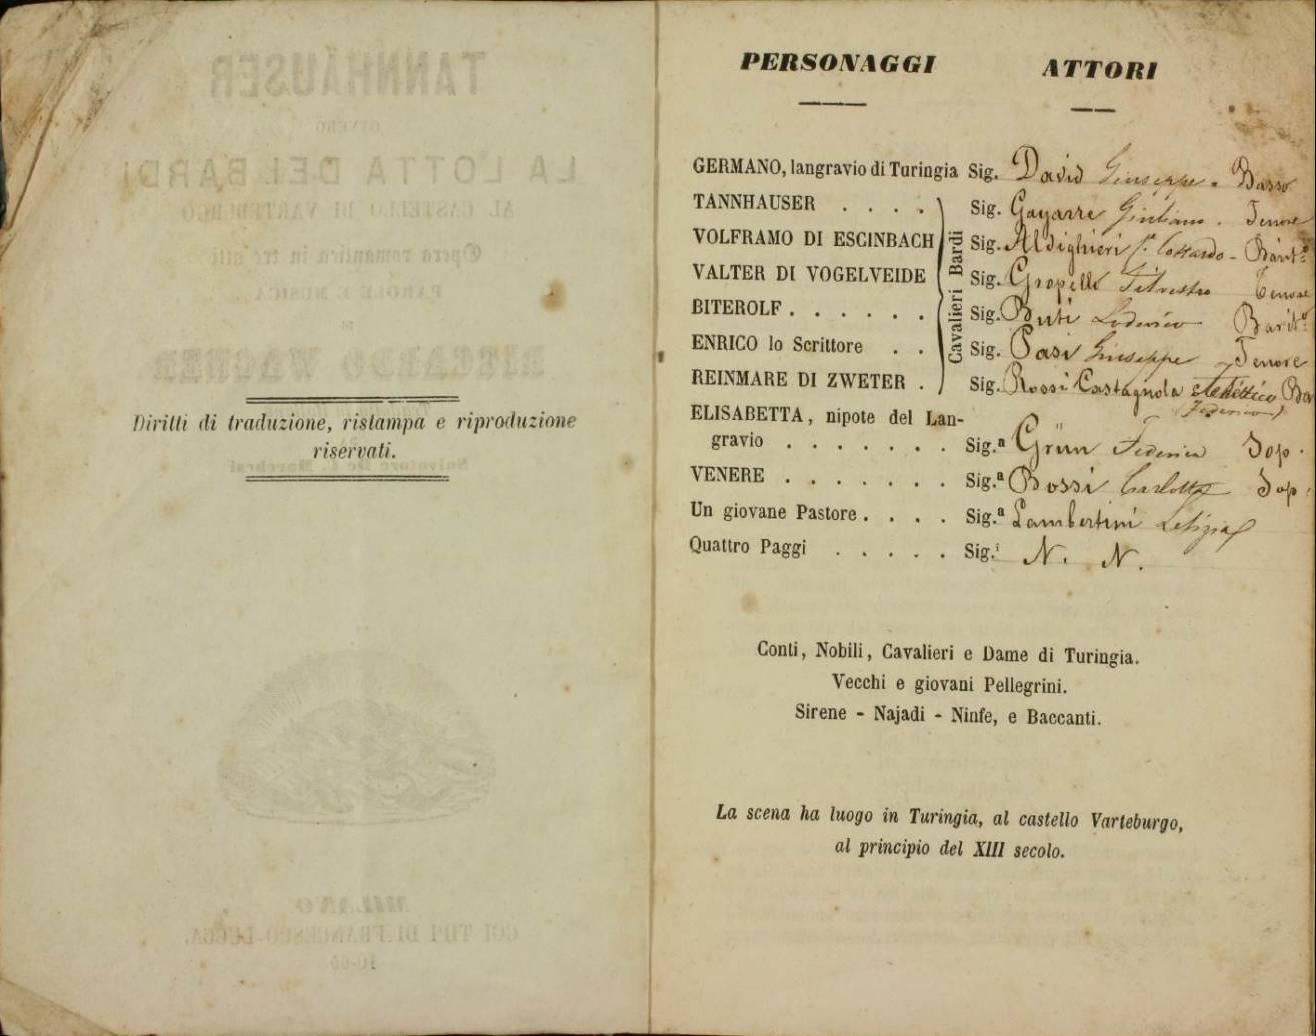 Diritti di traduzione, ristampa e riproduzione
riservati.
PERSONAGGI ATTORI
GERMANO, langravio di Turingia Sig. David Giuseppe - Basso
TANNHAUSER . . . . Sig. Gayarre Giuliano . Tenore
VOLFRAMO DI ESCINBACH Sig. Aldighieri Gottardo - Barit.o
VALTER DI VOGELVEIDE Sig. Gropello Silvestro Tenore
BITEROLF . . . . . . Sig. Buti Lodovico Barit.o
ENRICO lo Scrittore . . Sig. Pasi Giuseppe - Tenore
REINMARE DI ZWETER . Sig. Rossi Castagnola Ba
(Federico)
Cavalieri Bardi
ELISABETTA, nipote del Lan-
gravio . . . . . . . Sig.a Grün Federica Sop.
VENERE . . . . . . . Sig.a Bossi Carlotta Sop.
Un giovane Pastore . . . . Sig.a Lambertini Letizia
Quattro Paggi . . . . . Sig.i N. N.
Conti, Nobili, Cavalieri e Dame di Turingia.
Vecchi e giovani Pellegrini.
Sirene - Najadi - Ninfe, e Baccanti.
La scena ha luogo in Turingia, al castello Varteburgo,
al principio del XIII secolo.